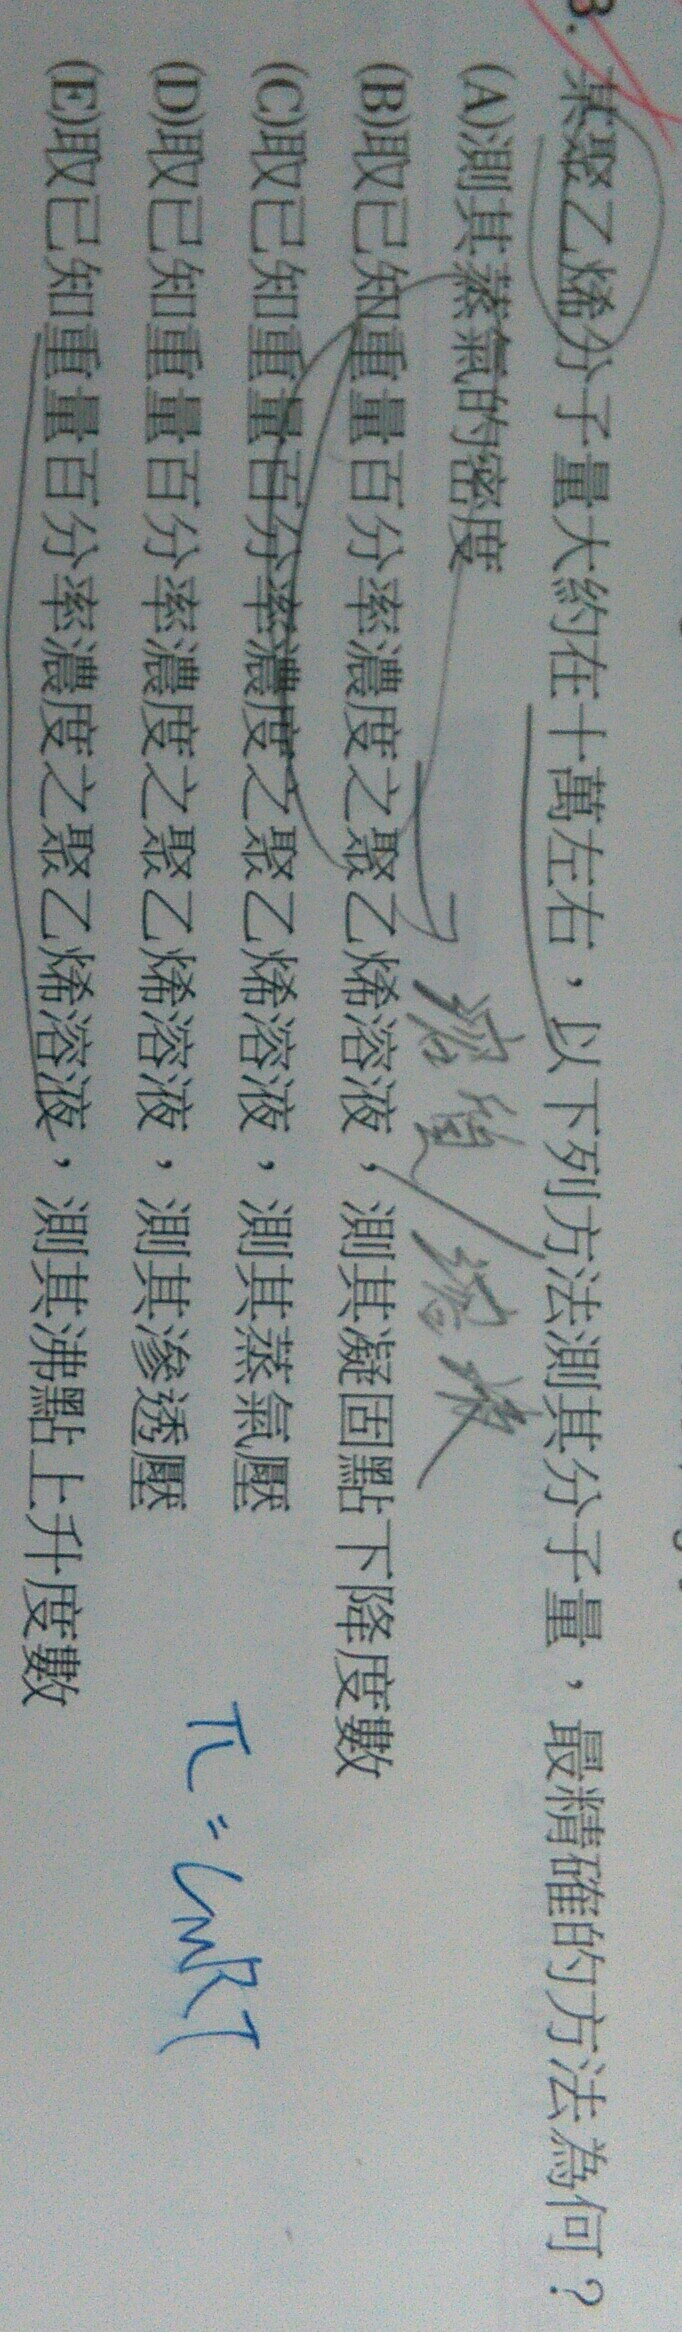 3. 某聚乙烯分子量大約在十萬左右，以下列方法測其分子量，最精確的方法為何？
(A)測其蒸氣的密度
溶質/溶液
(B)取已知重量百分率濃度之聚乙烯溶液，測其凝固點下降度數
(C)取已知重量百分率濃度之聚乙烯溶液，測其蒸氣壓
(D)取已知重量百分率濃度之聚乙烯溶液，測其滲透壓
π=CMRT
(E)取已知重量百分率濃度之聚乙烯溶液，測其沸點上升度數